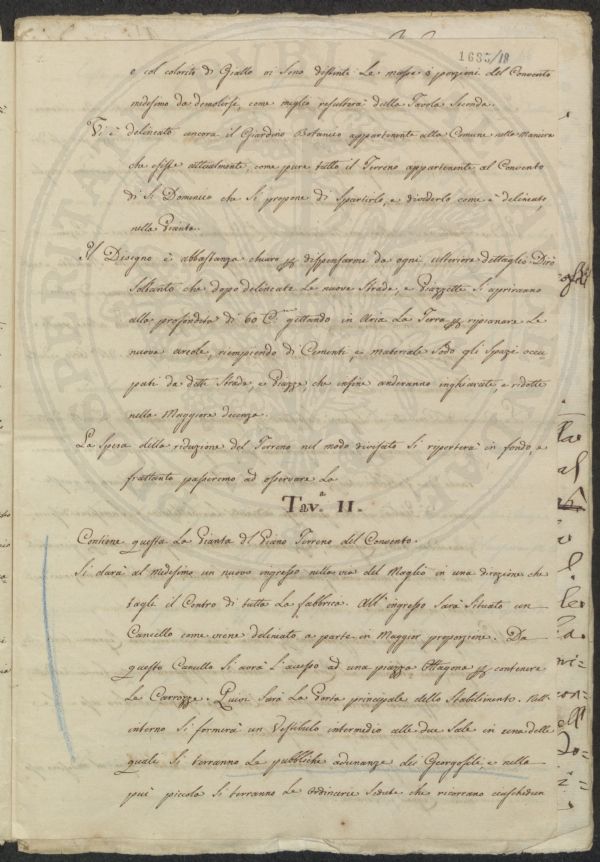 1685/18
e col colorito di Giallo vi sono distinte Le masse o porzioni del Convento
medesimo da demolirsi, come meglio resulterà dalla Tavola Seconda.
Vi è delineato ancora il Giardino Botanico appartenente alla Comune nella Maniera
che esiste attualmente, come pure tutto il Terreno appartenente al Convento
di S. Domenico che si propone di Spartirlo, e dividerlo come è delineato
nella Pianta.
Il Disegno è abbastanza chiaro per dispensarmi da ogni ulteriore dettaglio. Dirò
Soltanto che dopo delineate Le nuove Strade, e Piazzette Si apriranno
alla profondità di 60 C. gettando in Aria La Terra per ripianare Le
nuove areole, riempiendo di Cementi, e materiale Sodo gli Spazi occu=
pati da dette Strade, e Piazze, che infine anderanno inghiarate, e ridotte
nella Maggiore decenza.
La Spesa della riduzione del Terreno nel modo divisato Si riporterà in fondo, e
frattanto passeremo ad osservare La
Tav.ª II.
Contiene questa La Pianta del Piano Terreno del Convento.
Si darà al Medesimo un nuovo ingresso nella via del Maglio in una direzione che
tagli il Centro di tutta La fabbrica. All'ingresso Sarà Situato un
Cancello come viene delineato a parte in Maggior proporzione. Da
questo Cancello Si avrà L'accesso ad una piazza Ottagona per contenere
Le Carrozze. Quivi Sarà La Porta principale dello Stabilimento. Nell'
interno si formerà un Vestibulo intermedio alle due Sale in una delle
quali Si terranno Le pubbliche adunanze dei Georgofili, e nella
più piccola Si terranno Le Ordinarie Sedute che ricorrano ciaschedun